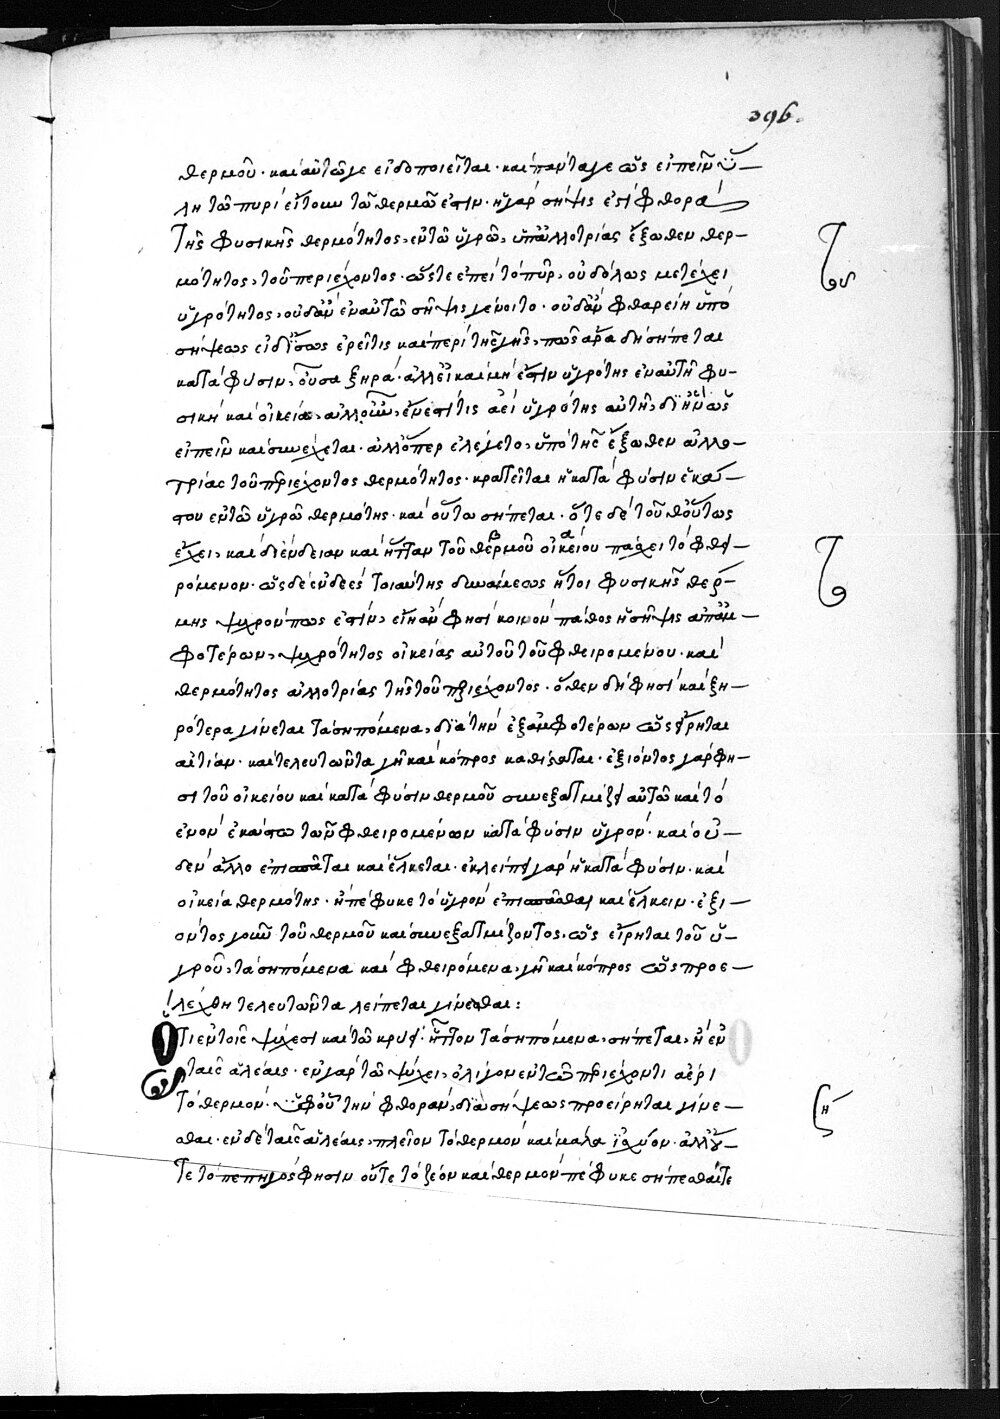 396.
θερμοῦ· καὶ αὐτῷ γε εἰδοποιεῖται· καὶ πάντα γε ὡς εἰπεῖν ὕ-
λη τῷ πυρὶ εἴτουν τῷ θερμῷ ἐστιν· ἡ γὰρ σῆψις ἐστὶ φθορὰ
τῆς φυσικῆς θερμότητος, ἐν τῷ ὑγρῷ, ὑπ' ἀλλοτρίας ἔξωθεν θερ-
μότητος, τοῦ περιέχοντος· ὥστε ἐπεὶ τὸ πῦρ, οὐδόλως μετέχει
ὑγρότητος, οὐδ' ἂν ἐν αὐτῷ σῆψις γένοιτο· οὐδ' ἂν φθαρείη ὑπὸ
σήψεως εἰ δ' ἴσως ἐρεῖ τις καὶ περὶ τῆς γῆς, πῶς ἄρα δὴ σήπεται
κατὰ φύσιν, οὖσα ξηρά· ἀλλ' εἰ καὶ μή ἐστιν ὑγρότης ἐν αὐτῇ φυ-
σικὴ καὶ οἰκεία, ἀλλ' οὖν, ἔνεστί τις ἀεὶ ὑγρότης αὐτῇ, δι' ἣν ὡς
εἰπεῖν καὶ συνέχεται· ἀλλ' ὅπερ ἐλέγετο, ὑπὸ τῆς ἔξωθεν ἀλλο-
τρίας τοῦ περιέχοντος θερμότητος· κρατεῖται ἡ κατὰ φύσιν ἑκά-
στου ἐν τῷ ὑγρῷ θερμότης· καὶ οὕτω σήπεται· ὅτε δὲ τοῦθ' οὕτως
ἔχει, καὶ δι' ἔνδειαν καὶ ἧτταν τοῦ θερμοῦ οἰκείου πάσχει τὸ φθει-
ρόμενον· ὡς δὲ ἐνδεὲς τοιαύτης δυνάμεως ἤτοι φυσικῆς θέρ-
μης ψυχρόν πως ἐστίν, εἴη ἂν φησὶ κοινὸν πάθος ἡ σῆψις ἀπ' ἀμ-
φοτέρων, ψυχρότητος οἰκείας αὐτοῦ τοῦ φθειρομένου· καὶ
θερμότητος ἀλλοτρίας τῆς τοῦ περιέχοντος· ὅθεν δὴ φησὶ καὶ ξη-
ρότερα γίνεται τὰ σηπόμενα, διὰ τὴν ἐξ ἀμφοτέρων ὡς εἴρηται
αἰτίαν· καὶ τελευτῶντα γῆ καὶ κόπρος καθίσταται· ἐξιόντος γὰρ φη-
σὶ τοῦ οἰκείου καὶ κατὰ φύσιν θερμοῦ συνεξατμίζει αὐτῷ καὶ τὸ
ἐνὸν ἑκάστῳ τῶν φθειρομένων κατὰ φύσιν ὑγρόν· καὶ οὐ-
δὲν ἄλλο ἐπισπᾶται καὶ ἕλκεται· ἐκλείπει γὰρ ἡ κατὰ φύσιν· καὶ
οἰκεία θερμότης· ἣ πέφυκε τὸ ὑγρὸν ἐπισπᾶσθαι καὶ ἕλκειν· ἐξι-
όντος γοῦν τοῦ θερμοῦ καὶ συνεξατμίζοντος, ὡς εἴρηται τοῦ ὑ-
γροῦ, τὰ σηπόμενα καὶ φθειρόμενα, γῆ καὶ κόπρος ὡς προε-
λέχθη τελευτῶντα λείπεται γίνεσθαι:
Ὅτι ἐν τοῖς ψύχεσι καὶ τῷ κρύει· ἧττον τὰ σηπόμενα, σήπεται, ἢ ἐν
ταῖς ἀλέαις· ἐν γὰρ τῷ ψύχει, ὀλίγον ἐν τῷ περιέχοντι ἀέρι
τὸ θερμόν· ὑφ' οὗ τὴν φθορὰν, διὰ σήψεως προείρηται γίνε-
σθαι· ἐν δὲ ταῖς ἀλέαις, πλεῖον τὸ θερμὸν καὶ μάλα ἰσχύον· ἀλλ' οὔ-
τε τὸ πεπηγός φησιν οὔτε τὸ ζέον καὶ θερμὸν πέφυκε σήπεσθαι τε